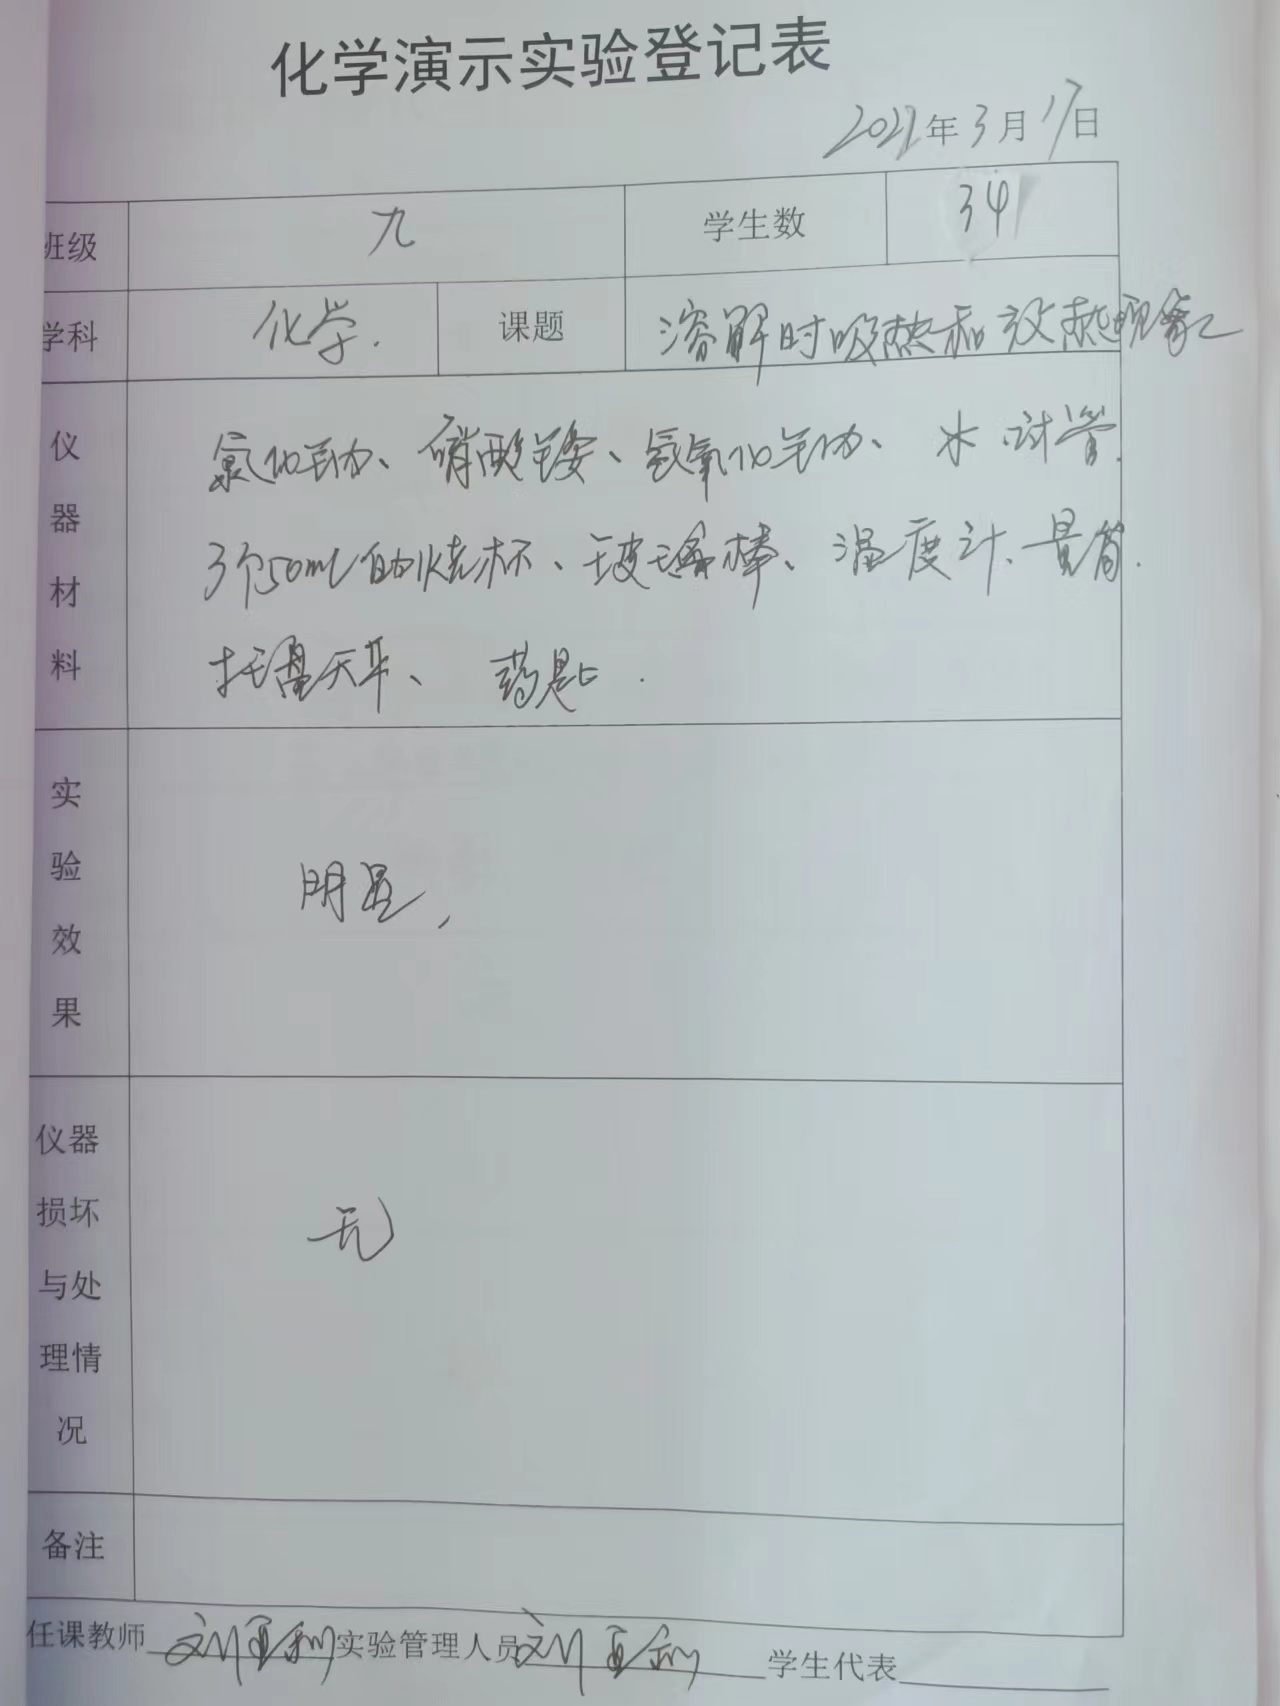 化学演示实验登记表
2022年3月17日
班级 九 学生数 34
学科 化学. 课题 溶解时吸热和放热现象
仪器材料 氯化钠、硝酸铵、氢氧化钠、水 试管.
3个50mL的烧杯、玻璃棒、温度计、量筒.
托盘天平、药匙.
实验效果 明显,
仪器损坏与处理情况 无
备注
任课教师 刘亚利 实验管理人员 刘亚利 学生代表